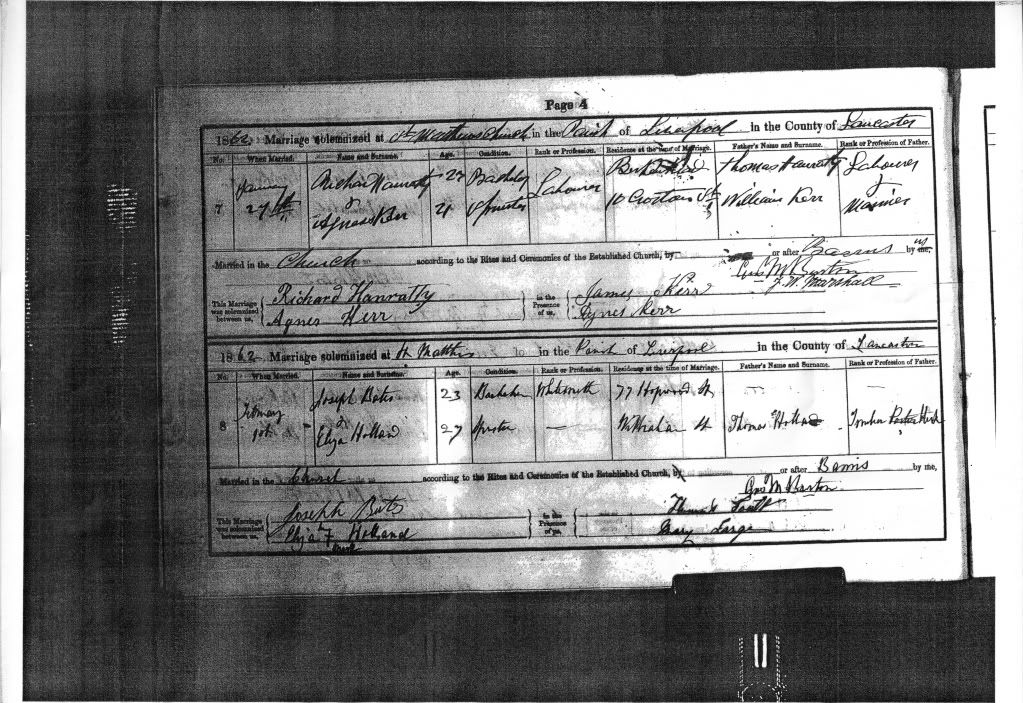 Page 4
1862. Marriage solemnized at St Matthews Church in the Parish of Liverpool in the County of Lancaster
No. When Married. Name and Surname. Age. Condition. Rank or Profession. Residence at the time of Marriage. Father's Name and Surname. Rank or Profession of Father.
January Richard Hanratty Bachelor Labourer Thomas Hanratty Labourer
7 27th & Agnes Kerr 21 Spinster 10 St William Kerr Mariner
Married in the Church according to the Rites and Ceremonies of the Established Church, by or after Banns by us,
Geo M Barton
J. W. Marshall
This Marriage was solemnized between us, Richard Hanratty in the Presence of us, James Kerr
Agnes Kerr Agnes Kerr
1862 Marriage solemnized at St Matthew in the Parish of Liverpool in the County of Lancaster
No. When Married. Name and Surname. Age. Condition. Rank or Profession. Residence at the time of Marriage. Father's Name and Surname. Rank or Profession of Father.
Joseph Bates 23 Bachelor Whitesmith 77 Hopwood St —
8 February & Eliza Holland 27 Spinster — St Thomas Holland
Married in the Church according to the Rites and Ceremonies of the Established Church, by or after Banns by me,
Geo M Barton
This Marriage was solemnized between us, Joseph Bates in the Presence of us, Thomas
Eliza Holland
Mark